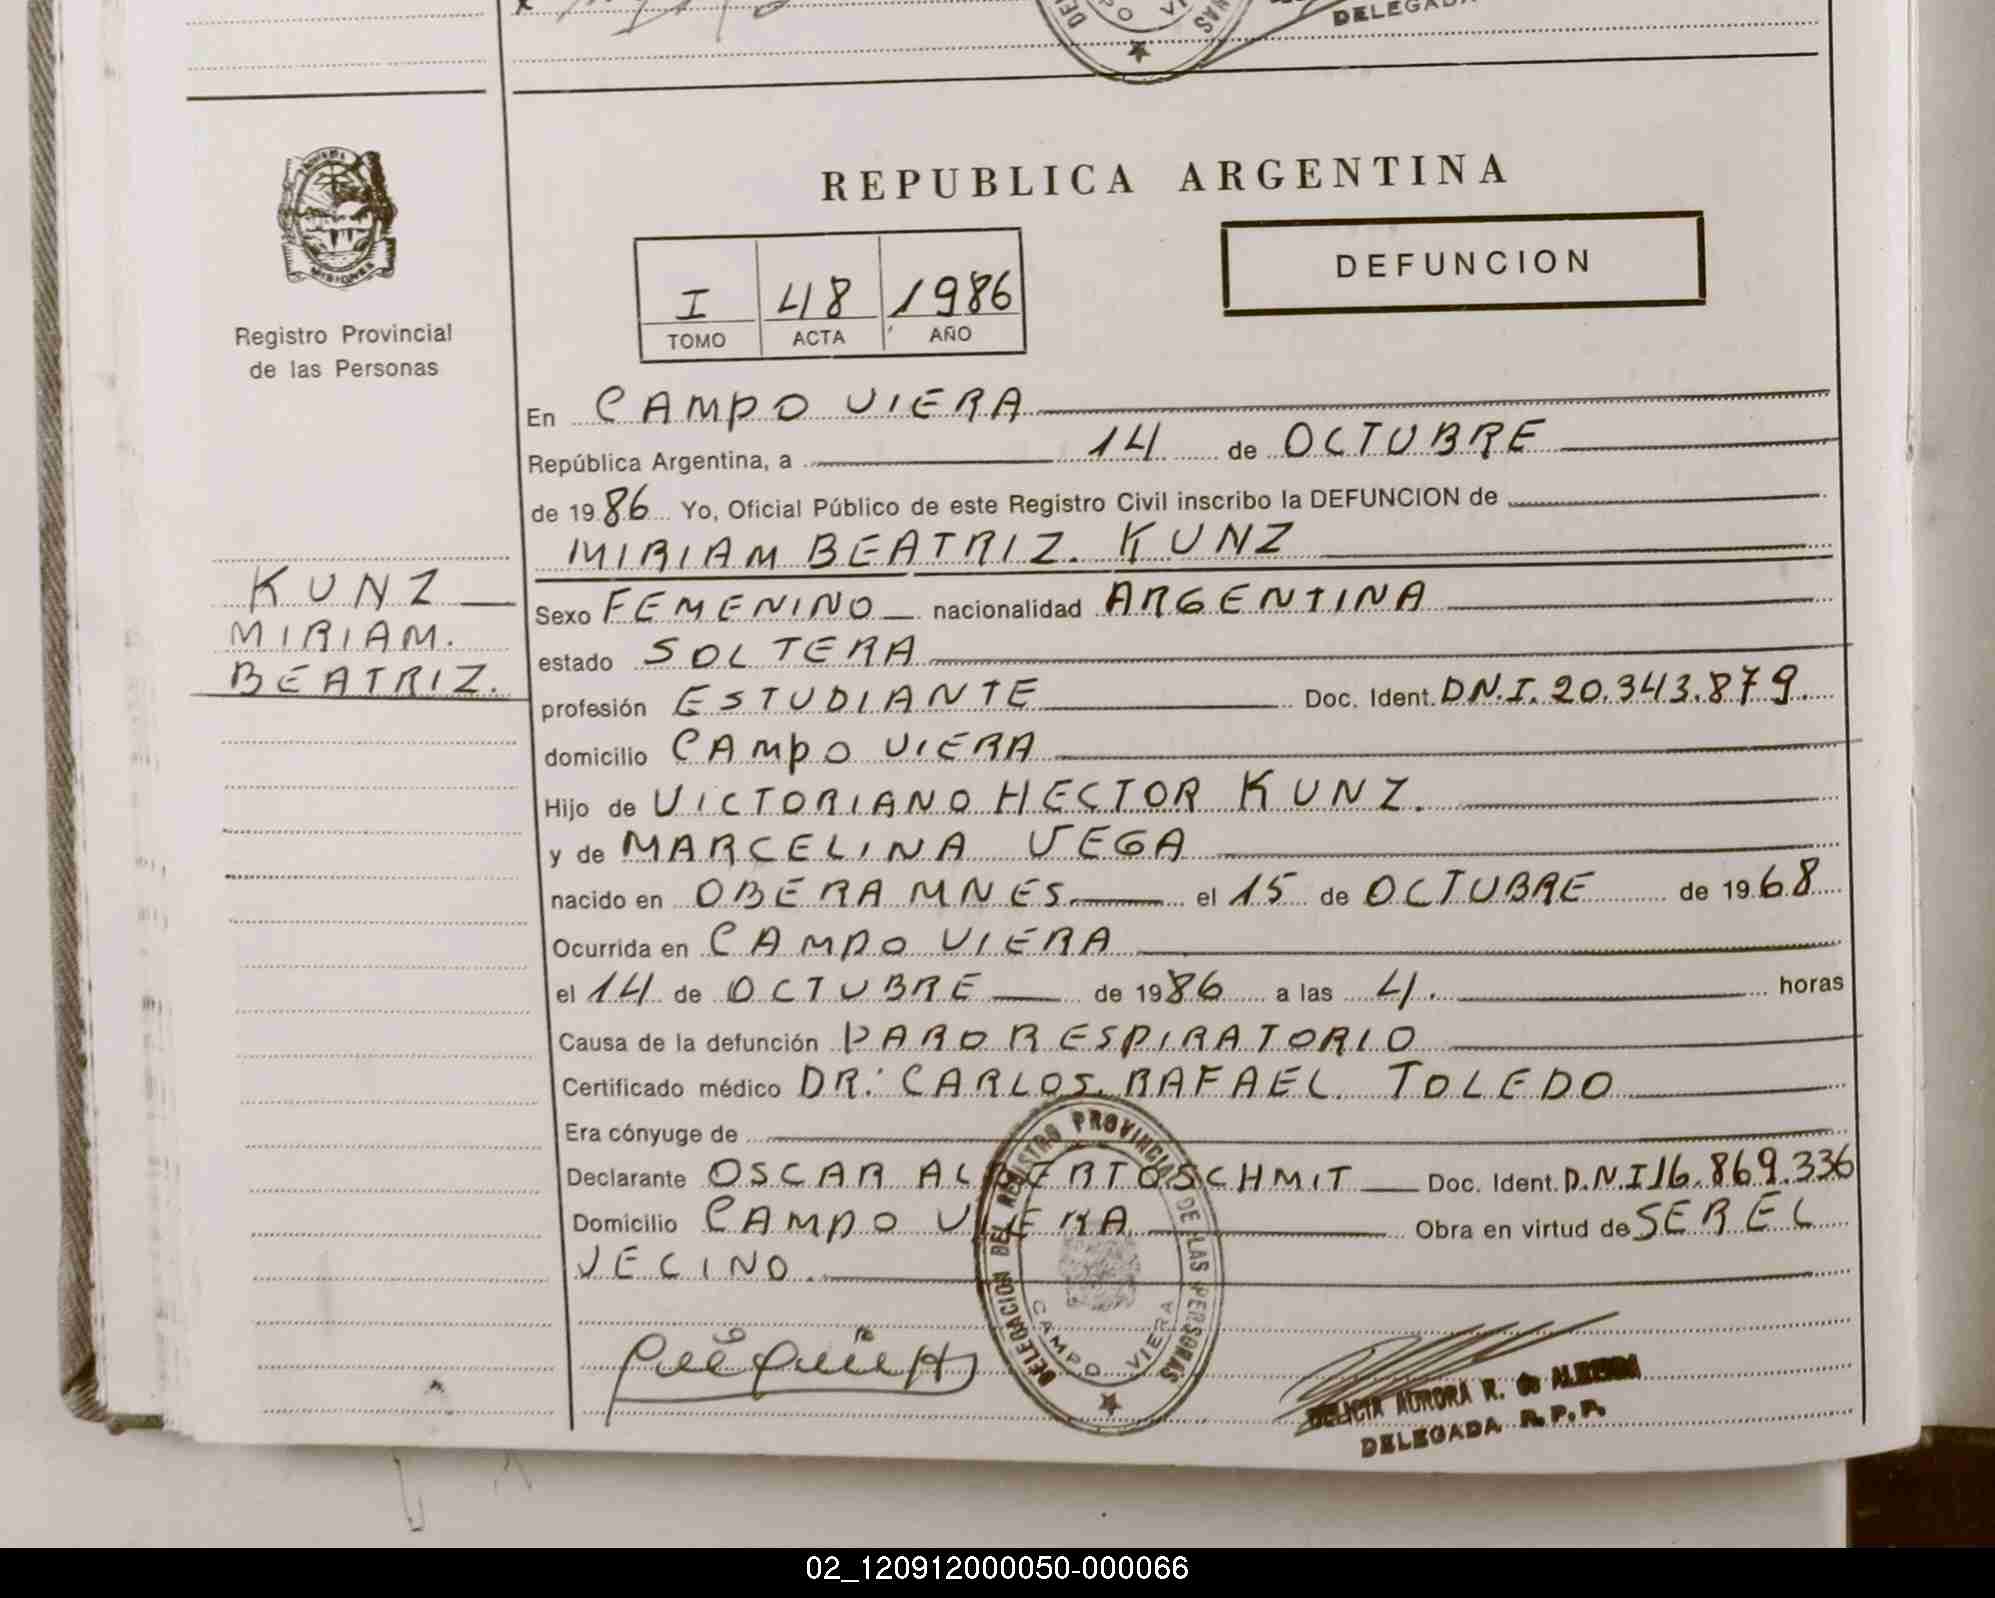 DELEGADA
REPUBLICA ARGENTINA
DEFUNCION
I 48 1986
TOMO ACTA AÑO
MISIONES
Registro Provincial
de las Personas
En CAMPO VIERA
República Argentina, a 14 de OCTUBRE
de 1986 Yo, Oficial Público de este Registro Civil inscribo la DEFUNCION de
MIRIAM BEATRIZ. KUNZ
KUNZ
MIRIAM.
BEATRIZ.
Sexo FEMENINO nacionalidad ARGENTINA
estado SOLTERA
profesión ESTUDIANTE Doc. Ident. DN.I. 20.343.879.
domicilio CAMPO VIERA
Hijo de VICTORIANO HECTOR KUNZ.
y de MARCELINA VEGA
nacido en OBERA MNES. el 15 de OCTUBRE de 1968
Ocurrida en CAMPO VIERA
el 14 de OCTUBRE de 1986 a las 4. horas
Causa de la defunción PARO RESPIRATORIO
Certificado médico DR: CARLOS. RAFAEL. TOLEDO
Era cónyuge de
Declarante OSCAR ALBERTO SCHMIT Doc. Ident. D.N.I 16.869.336
Domicilio CAMPO VIERA Obra en virtud de SER EL
VECINO.
DELEGACION DEL REGISTRO PROVINCIAL DE LAS PERSONAS
CAMPO VIERA
DELICIA AURORA R. de ALMEIDA
DELEGADA R.P.P.
02_120912000050-000066